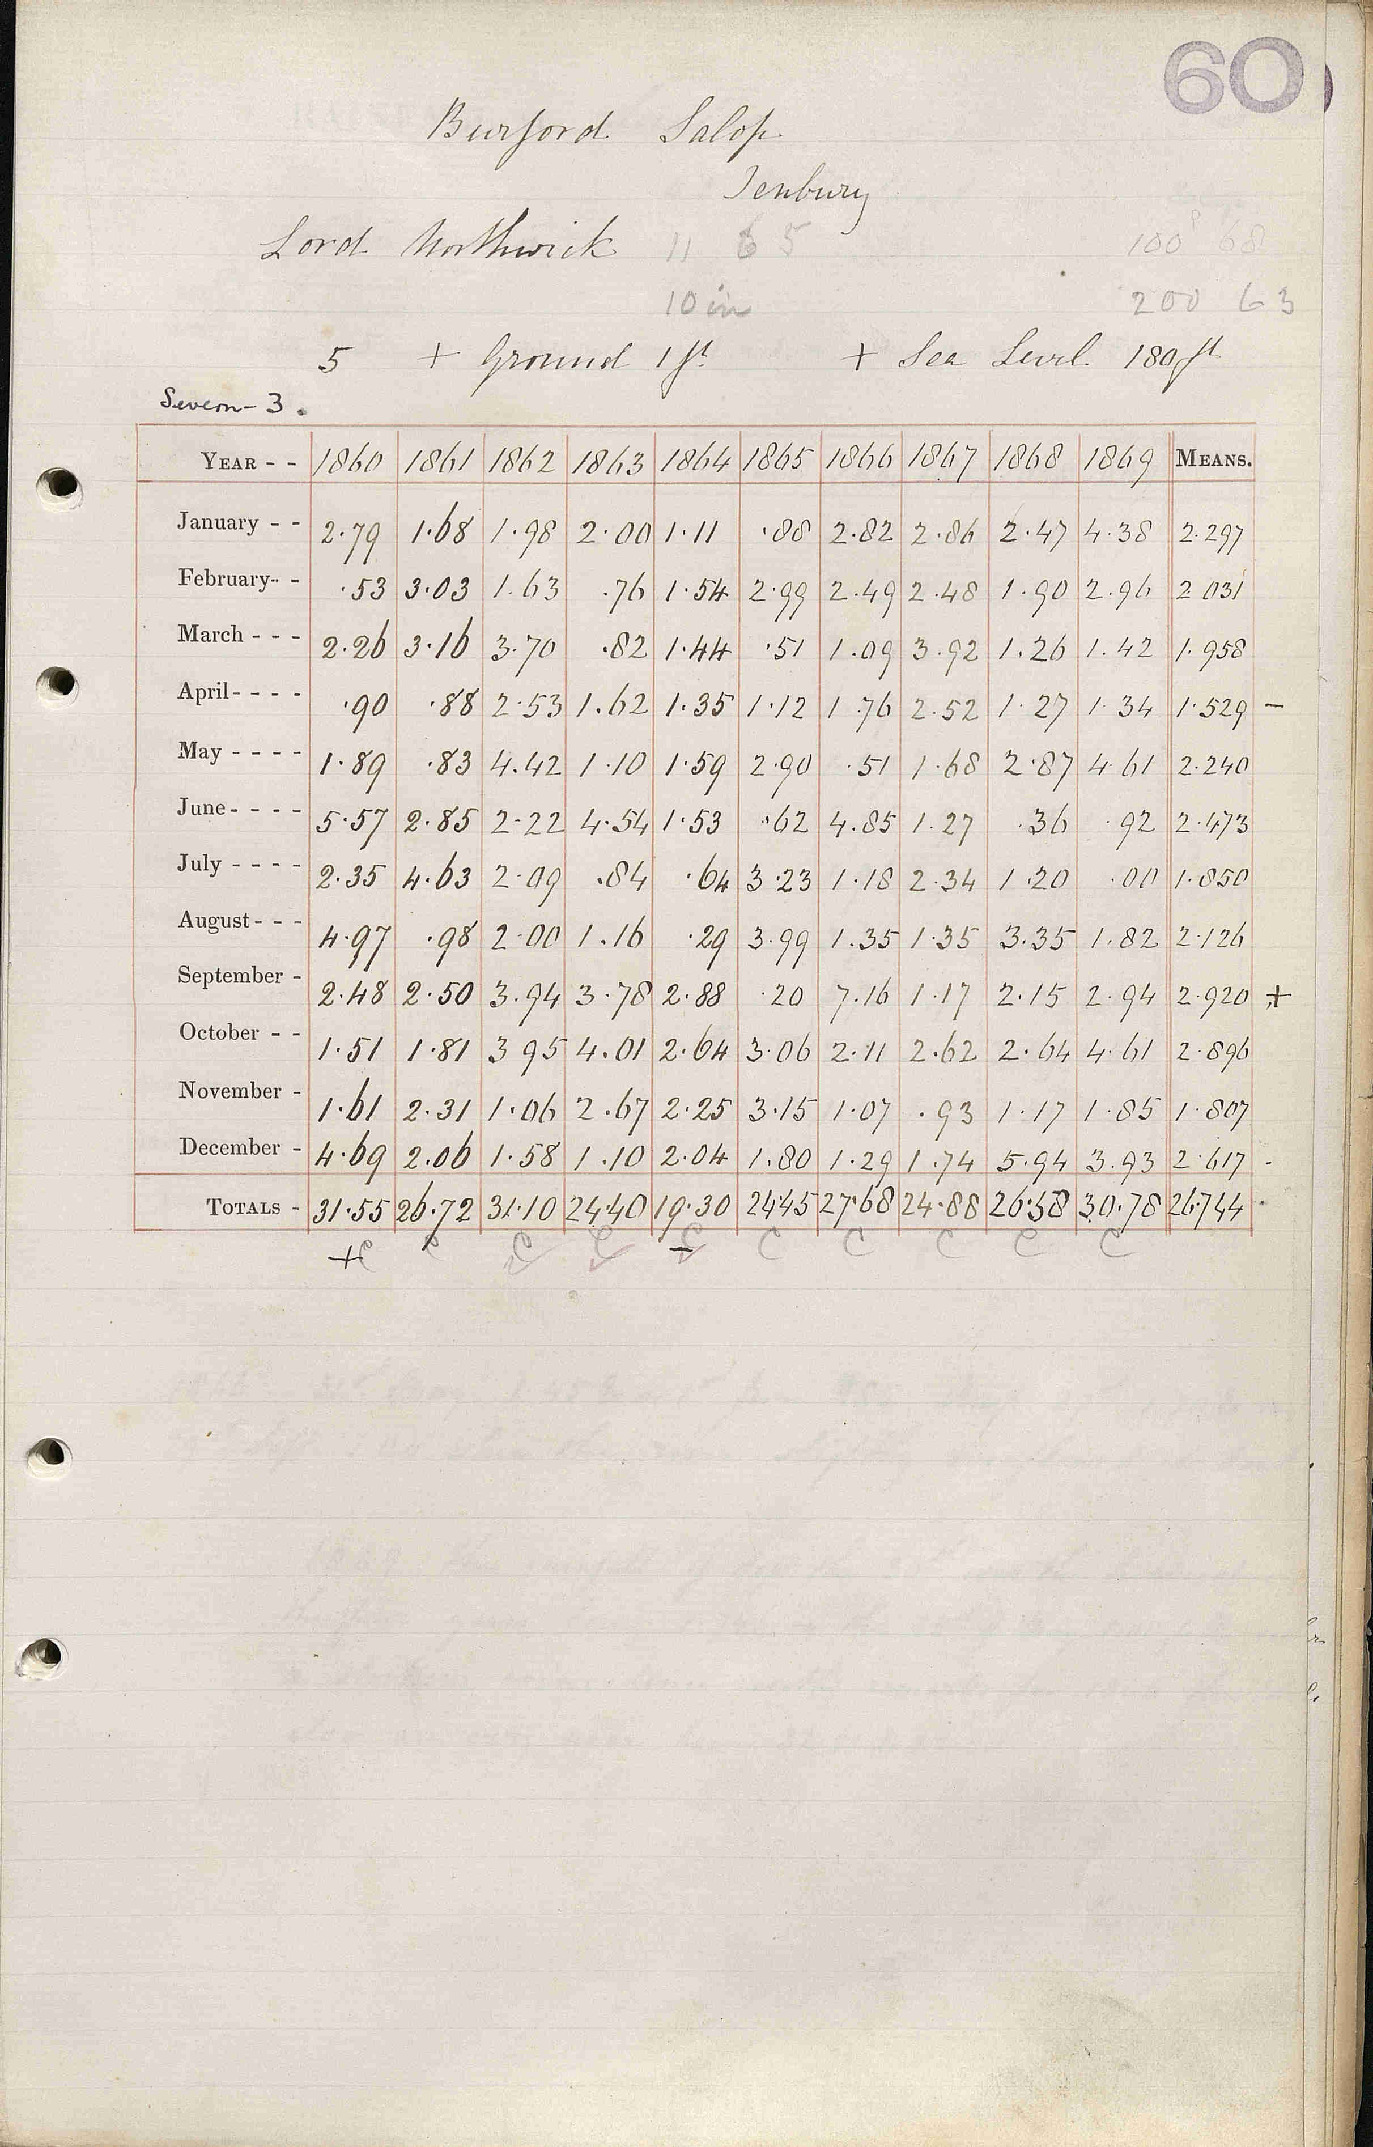 60
Burford Salop
Tenbury
Lord Northwick 11 65 100 68
10 in 200 63
5 + Ground 1 ft + Sea Level 180 ft
Severn - 3.
YEAR - - 1860 1861 1862 1863 1864 1865 1866 1867 1868 1869 MEANS.
January - - 2.79 1.68 1.98 2.00 1.11 .88 2.82 2.86 2.47 4.38 2.297
February - - .53 3.03 1.63 .76 1.54 2.99 2.49 2.48 1.90 2.96 2.031
March - - - 2.26 3.16 3.70 .82 1.44 .51 1.09 3.92 1.26 1.42 1.958
April - - - - .90 .88 2.53 1.62 1.35 1.12 1.76 2.52 1.27 1.34 1.529 -
May - - - - 1.89 .83 4.42 1.10 1.59 2.90 .51 1.68 2.87 4.61 2.240
June - - - - 5.57 2.85 2.22 4.54 1.53 .62 4.85 1.27 .36 .92 2.473
July - - - - 2.35 4.63 2.09 .84 .64 3.23 1.18 2.34 1.20 .00 1.850
August - - - 4.97 .98 2.00 1.16 .29 3.99 1.35 1.35 3.35 1.82 2.126
September - 2.48 2.50 3.94 3.78 2.88 .20 7.16 1.17 2.15 2.94 2.920 +
October - - 1.51 1.81 3.95 4.01 2.64 3.06 2.11 2.62 2.64 4.61 2.896
November - 1.61 2.31 1.06 2.67 2.25 3.15 1.07 .93 1.17 1.85 1.807
December - 4.69 2.06 1.58 1.10 2.04 1.80 1.29 1.74 5.94 3.93 2.617
TOTALS - 31.55 26.72 31.10 24.40 19.30 24.45 27.68 24.88 26.58 30.78 26.744
+ c c c c - c c c c c c